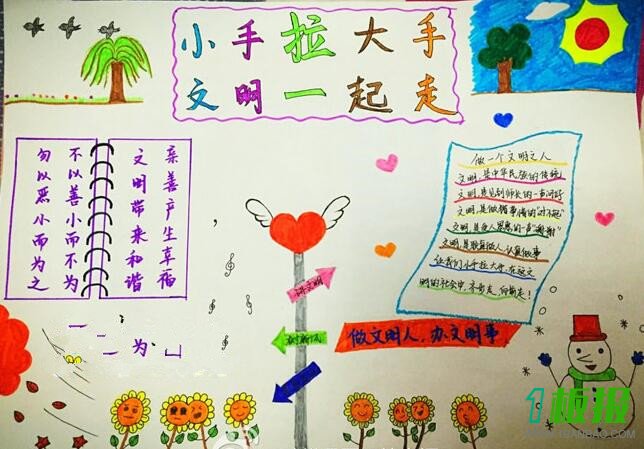 小手拉大手
文明一起走
亲善产生幸福
文明带来和谐
不以善小而不为
勿以恶小而为之
做一个文明之人
文明,是中华民族的传统
文明,是见到师长的一声问好
文明,是做错事情的"对不起"
文明,是受人恩惠的一声"谢谢"
文明,是做人,认真做事
让我们小手拉大手,在文
明的社会中,齐步走,向前走!
讲文明
树新风
做文明人,办文明事
1板报
WWW.1BANBAO.COM